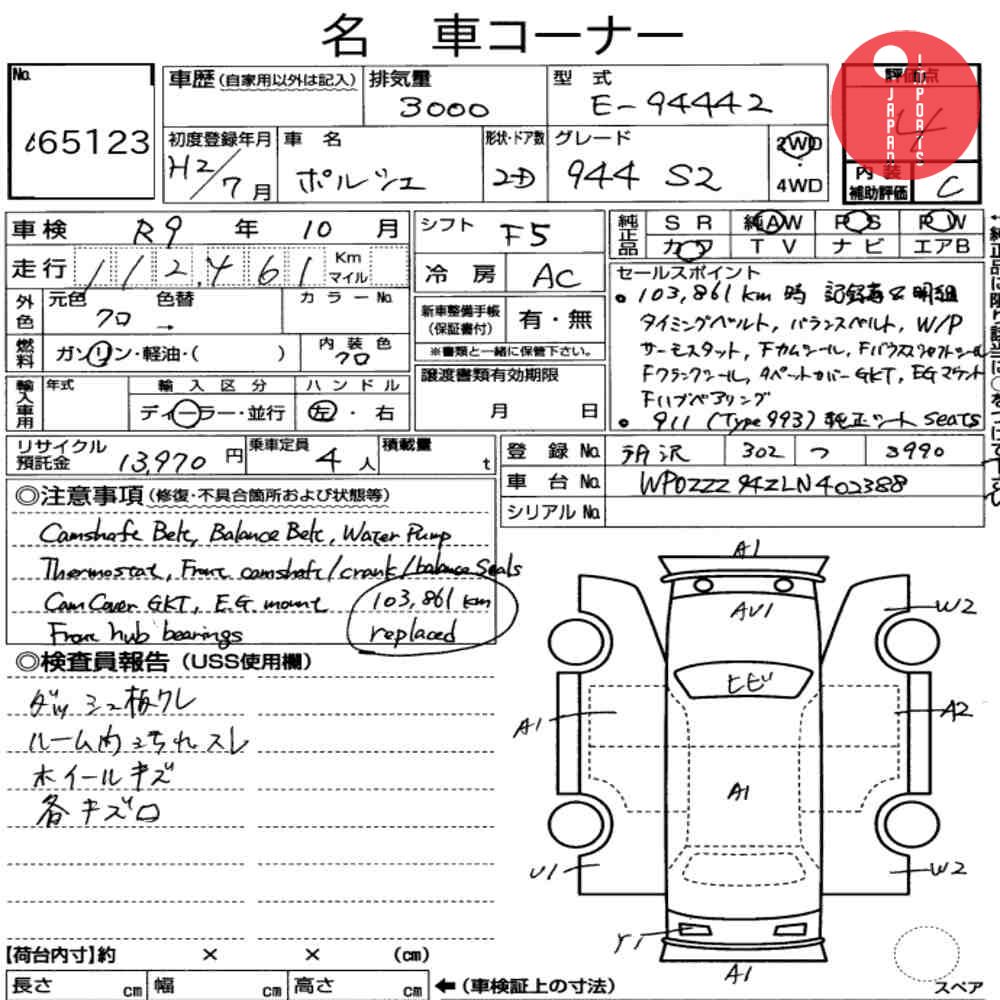 名 車コーナー
No.
65123
車歴(自家用以外は記入)
排気量
3000
型式
E-94442
評価点
4
JAPAN
IMPORTS
初度登録年月
H2/7月
車名
ポルシェ
形状・ドア数
2D
グレード
944 S2
2WD
・
4WD
内装
補助評価
C
車検 R9年 10月
走行 112,461 Km
マイル
外色
元色
クロ
色替
→
カラーNo.
燃料
ガソリン・軽油・( )
内装色
クロ
輸入車用
年式
輸入区分
ディーラー・並行
ハンドル
左・右
シフト F5
冷房 AC
新車整備手帳
(保証書付)
有・無
※書類と一緒に保管下さい。
譲渡書類有効期限
月 日
純正品
SR 純AW PS PW
カワ TV ナビ エアB
セールスポイント
• 103,861km時 記録簿&明細
タイミングベルト, バランスベルト, W/P
サーモスタット, Fカムシール, Fバランスシャフトシール
Fクランクシール, タペットカバーGKT, EGマウント
Fハブベアリング
• 911 (Type 993) 純正シート Seats
リサイクル
預託金
13,970円
乗車定員
4人
積載量
t
登録No. 所沢 302 つ 3990
車台No. WP0ZZZ94ZLN402388
シリアルNo.
◎注意事項(修復・不具合箇所および状態等)
Camshaft Belt, Balance Belt, Water Pump
Thermostat, Front camshaft/crank/balance Seals
Cam Cover GKT, E.G. mount 103,861 km
Front hub bearings replaced
◎検査員報告(USS使用欄)
ダッシュ板ワレ
ルーム内よごれスレ
ホイールキズ
各キズロ
A1
AU1
W2
ヒビ
A1
A2
A1
U1
W2
Y1
A1
スペア
【荷台内寸】約 × × (cm)
長さ cm 幅 cm 高さ cm ←(車検証上の寸法)